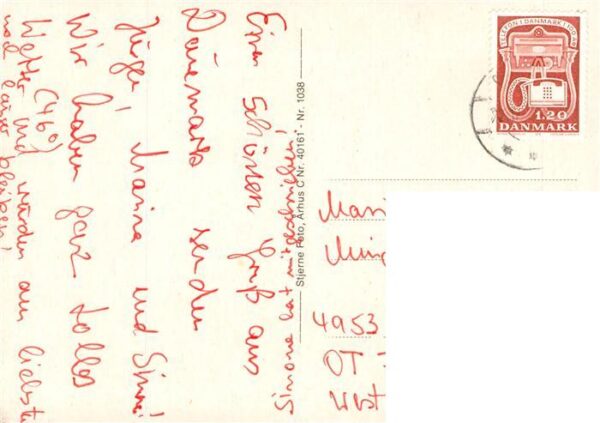 Einen schönen Gruß aus
Dänemark senden
Marina und
Wir haben ganz tolles
Wetter und würden am liebsten
noch länger bleiben!
Simone hat mitgeschrieben!
Stjerne Foto, Århus C Nr. 40161 - Nr. 1038
TELEFON I DANMARK I 100 ÅR
1.20
DANMARK
4953
OT
West